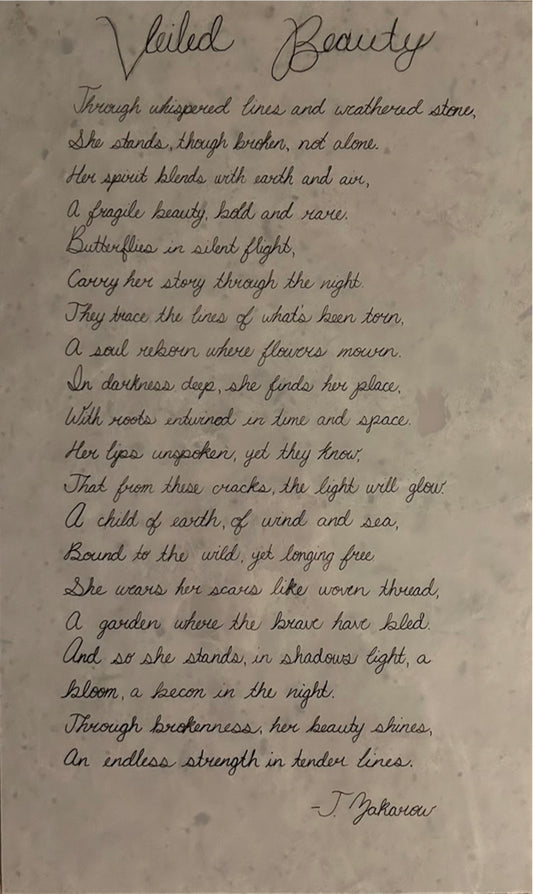 Veiled Beauty
Through whispered lines and weathered stone,
She stands, though broken, not alone.
Her spirit blends with earth and air,
A fragile beauty, bold and rare.
Butterflies in silent flight,
Carry her story through the night.
They trace the lines of what's been torn,
A soul reborn where flowers mourn.
In darkness deep, she finds her place,
With roots entwined in time and space.
Her lips unspoken, yet they know,
That from these cracks, the light will glow.
A child of earth, of wind and sea,
Bound to the wild, yet longing free
She wears her scars like woven thread,
A garden where the brave have bled.
And so she stands, in shadows light, a
bloom, a becon in the night.
Through brokenness, her beauty shines,
An endless strength in tender lines.
-J. Makarow